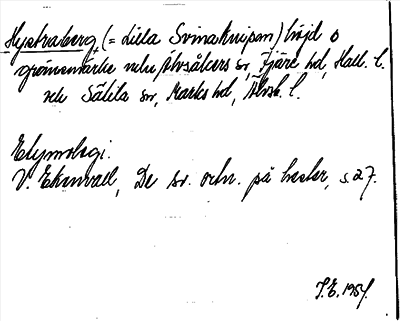 Hystraberg (= Lilla Svinaknipan) höjd o
gränsmärke mln Älvsåkers sn, Fjäre hd, Hall. l.
och Sätila sn, Marks hd, Älvsb. l.
Etymologi.
V. Ekenvall, De sv. ortn. på hester, s. 27.
J.E. 1954.